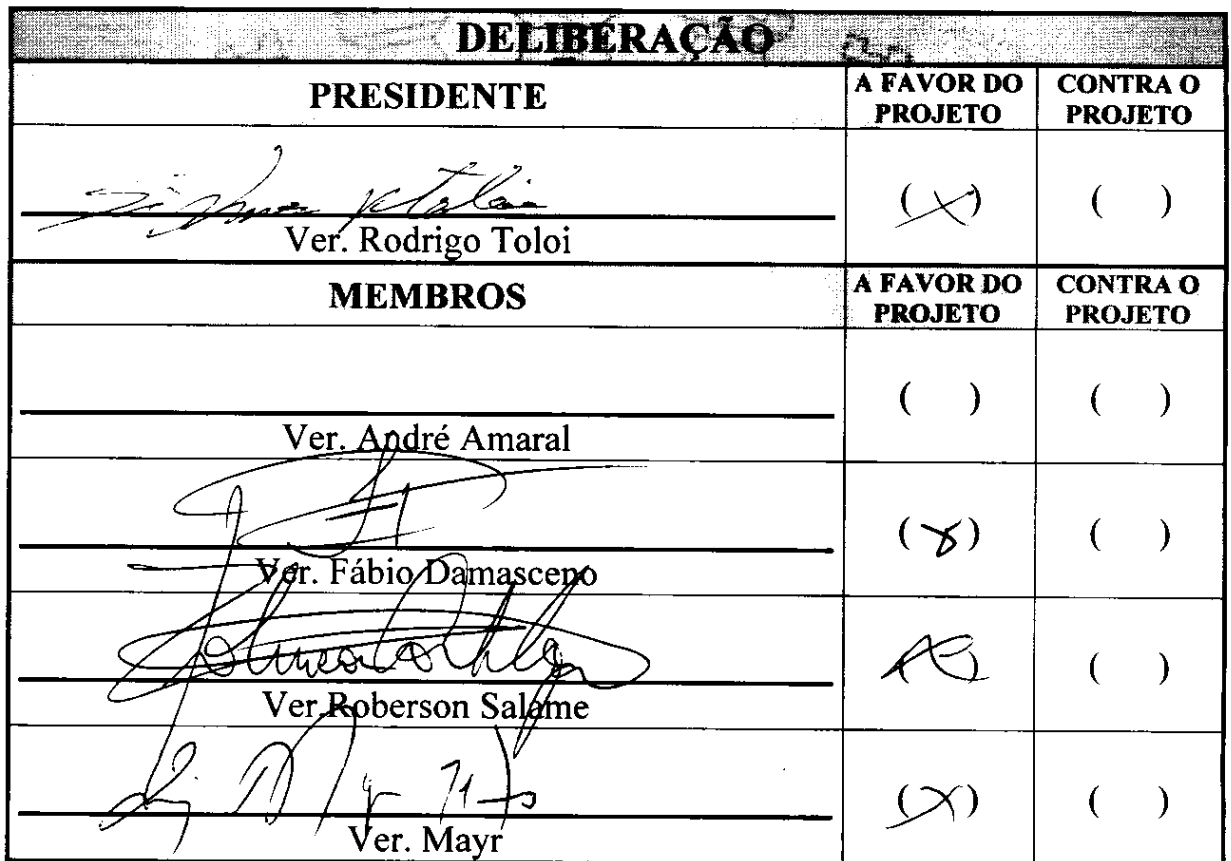 DELIBERAÇÃO
PRESIDENTE A FAVOR DO PROJETO CONTRA O PROJETO
( X ) ( )
Ver. Rodrigo Toloi
MEMBROS A FAVOR DO PROJETO CONTRA O PROJETO
( ) ( )
Ver. André Amaral
( X ) ( )
Ver. Fábio Damasceno
( X ) ( )
Ver. Roberson Salame
( X ) ( )
Ver. Mayr